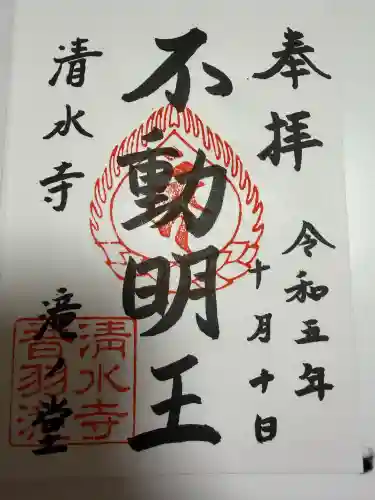 奉拝
令和五年
十月十日
不動明王
清水寺
滝ノ堂
清水寺
音羽滝